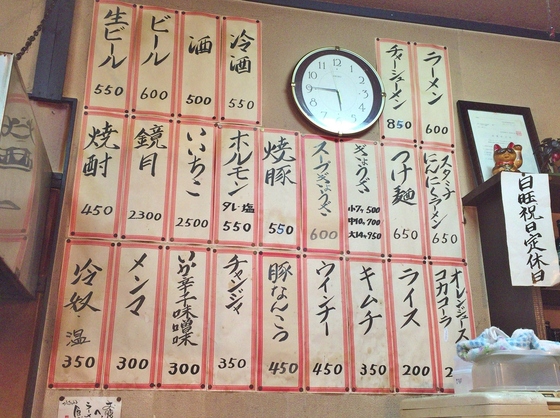 生ビール
550
ビール
600
酒
500
冷酒
550
チャーシューメン
850
ラーメン
600
焼酎
450
鏡月
2300
いいちこ
2500
ホルモン
タレ・塩
550
焼豚
550
スープぎょうざ
600
ぎょうざ
小7ヶ500
中10ヶ700
大14ヶ950
つけ麺
650
スタミナ
にんにくラーメン
650
冷奴
温
350
メンマ
300
いか辛味噌
300
チャンジャ
350
豚なんこつ
450
ウインナー
450
キムチ
350
ライス
200
オレンジジュース
コカコーラ
2
日旺祝日定休日
12
1
2
3
4
5
6
7
8
9
10
11